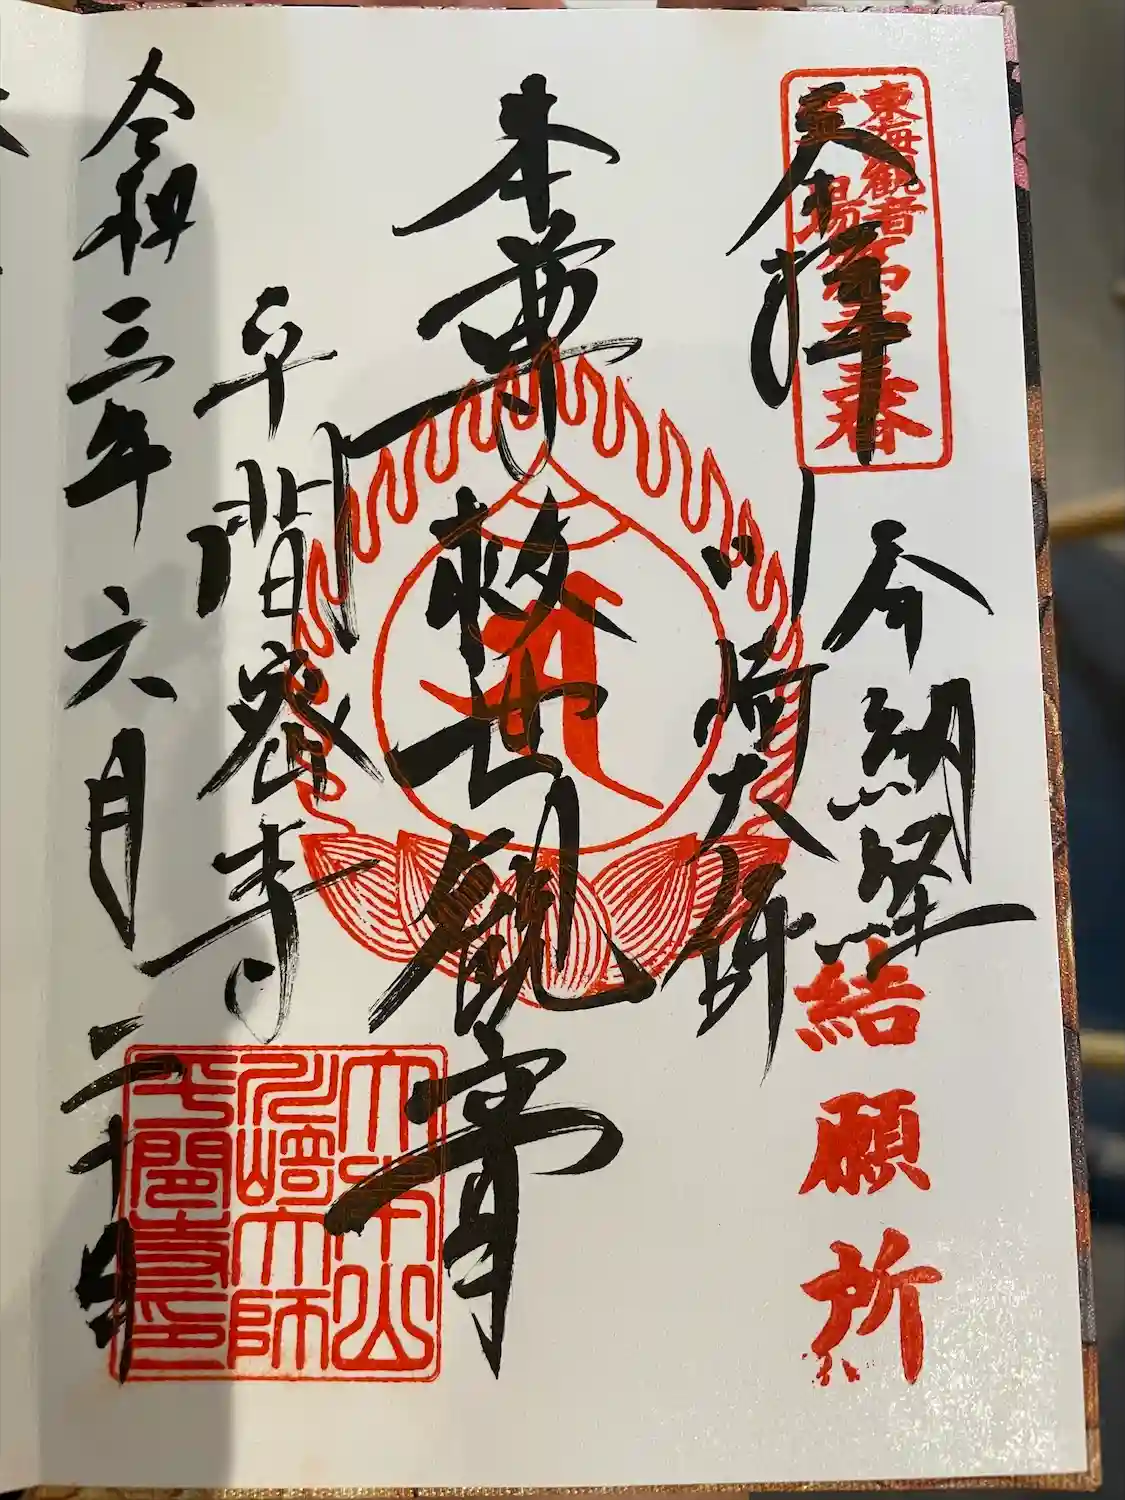 東海観音
霊場
奉拝
納経
結願所
川崎大師
本尊救世観音
平間密寺
令和三年六月二十
大本山
川崎大師
平間寺印